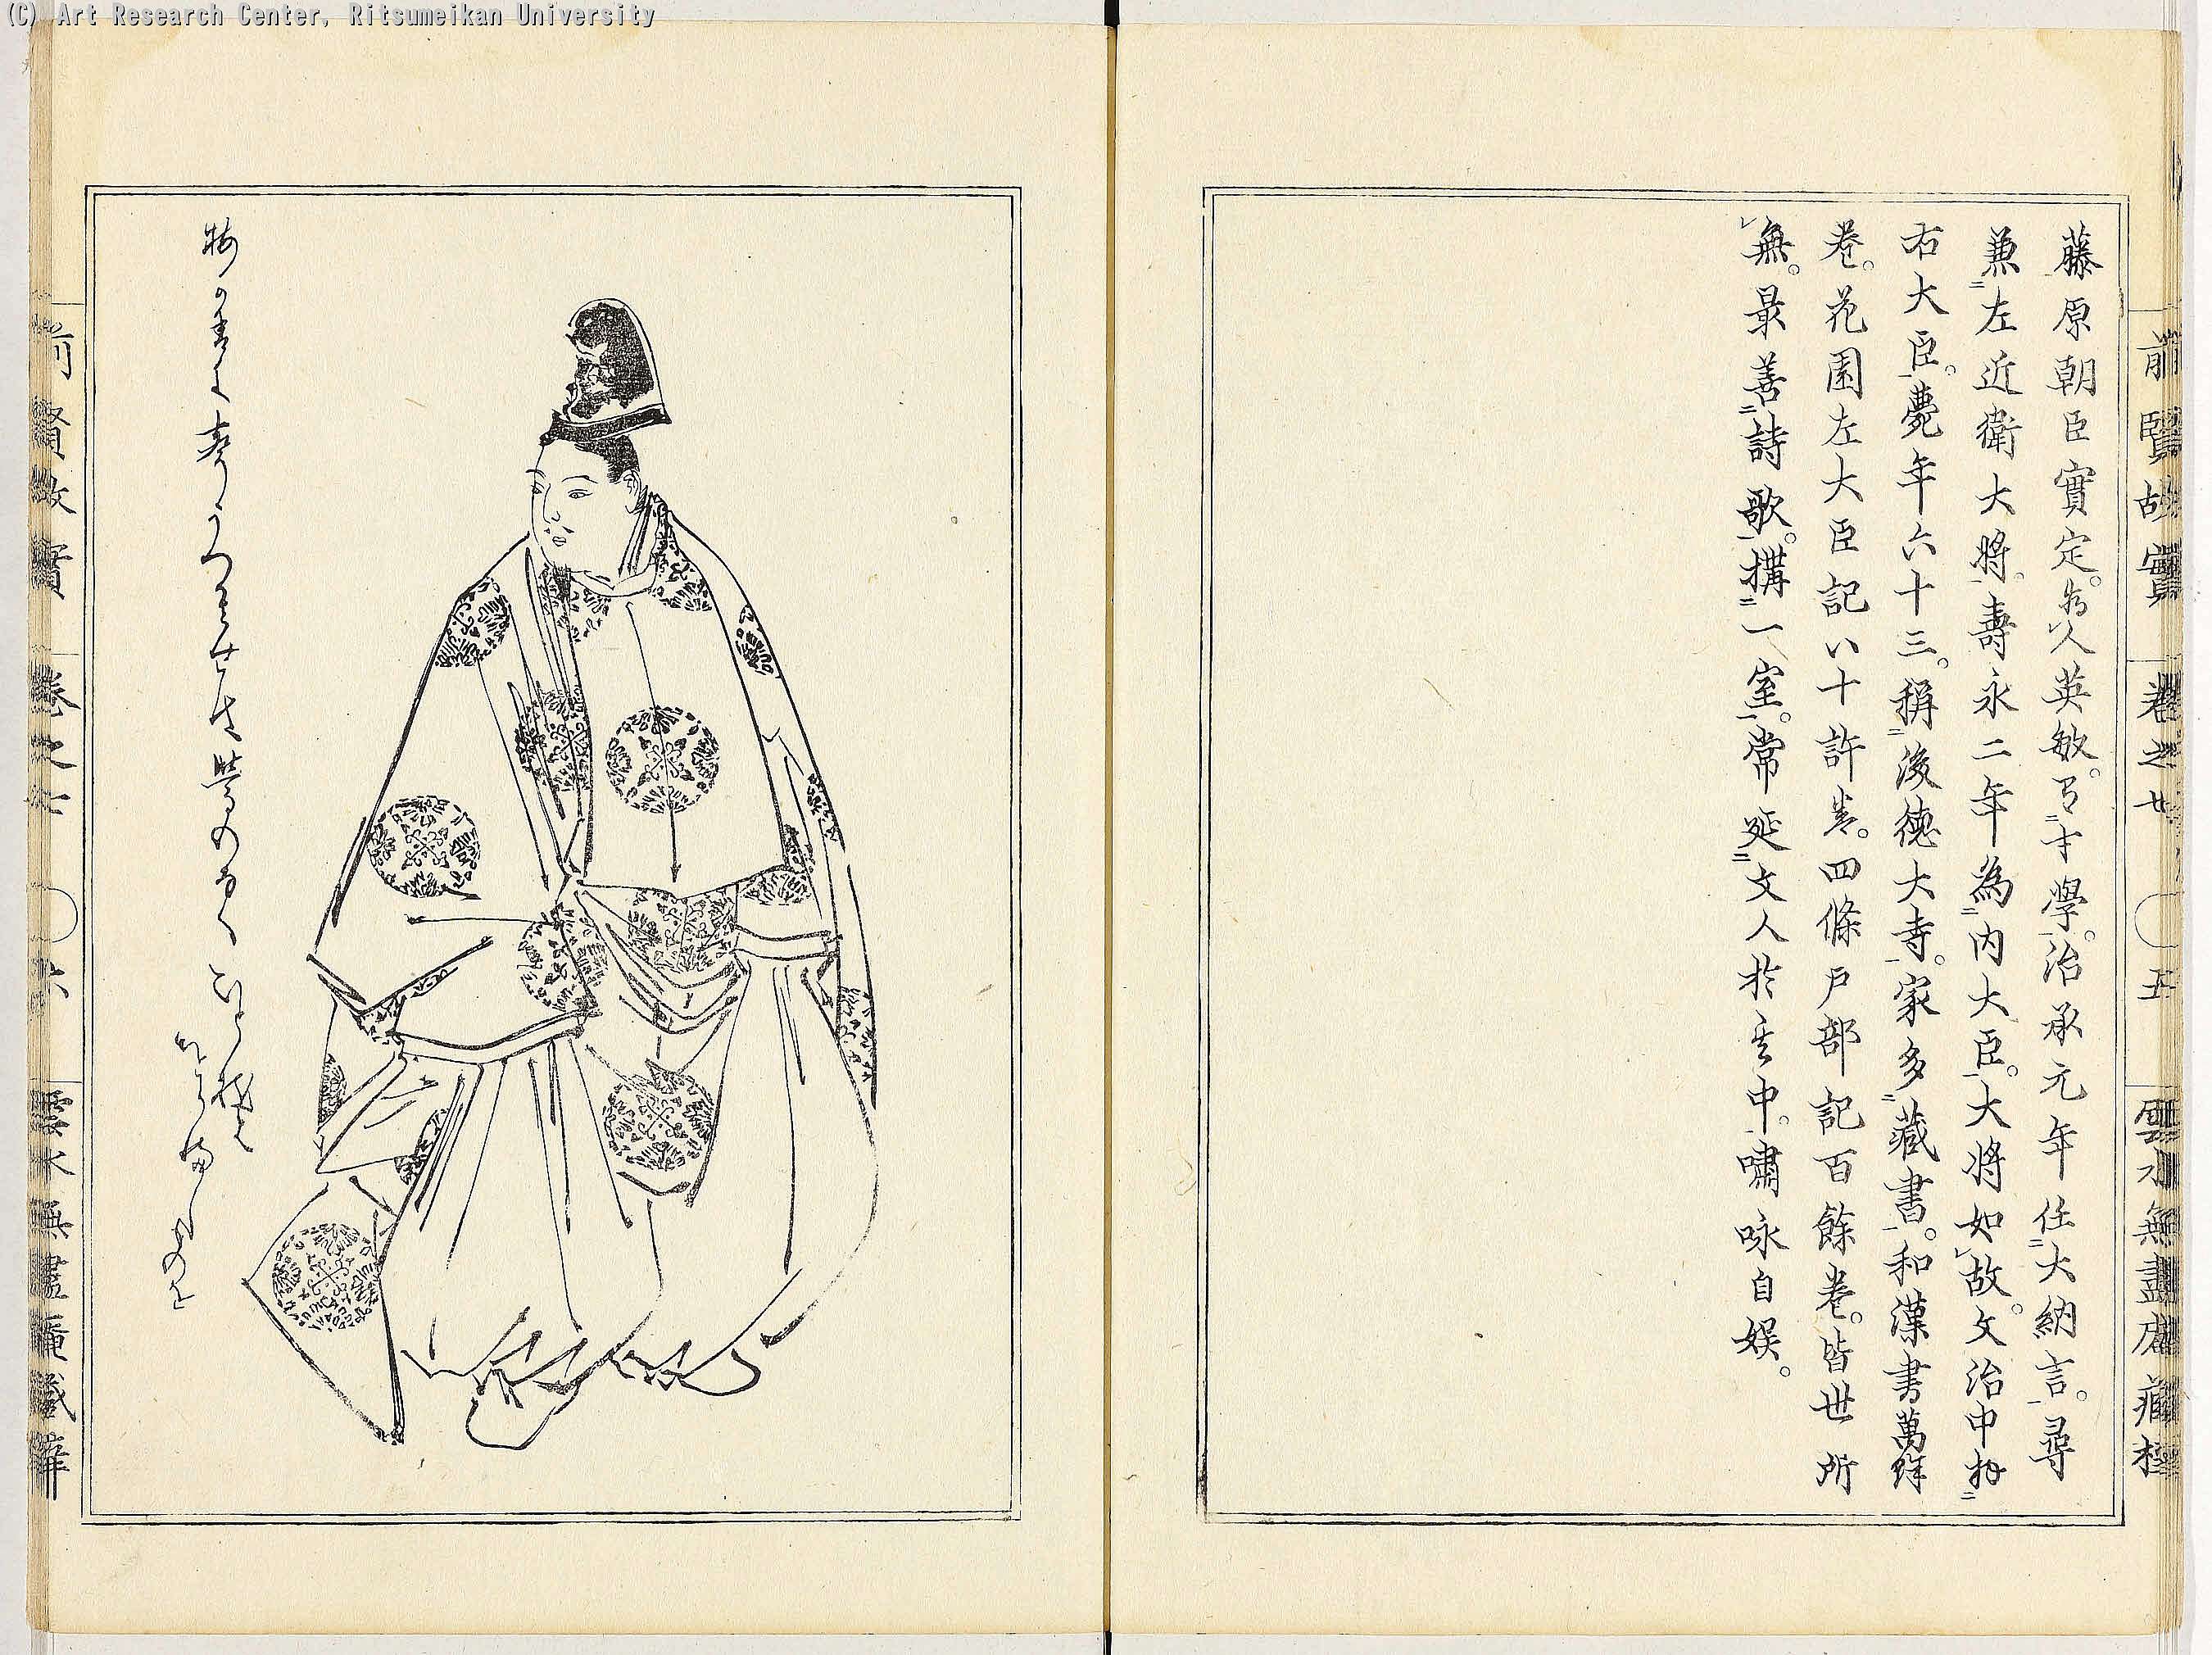 (C) Art Research Center, Ritsumeikan University
前賢故實 卷之廿 ○五 雲水無盡庵藏
藤原朝臣實定。為人英敏。有才學。治承元年任大納言。尋
兼左近衛大將。壽永二年為内大臣。大將如故。文治中拜
右大臣。薨年六十三。稱後徳大寺。家多藏書。和漢書萬餘
巻。花園左大臣記八十許巻。四條戸部記百餘巻。皆世所
無。最善詩歌。搆一室。常延文人於其中。嘯咏自娯。
前賢故實 卷之 ○六 雲水無盡庵藏梓